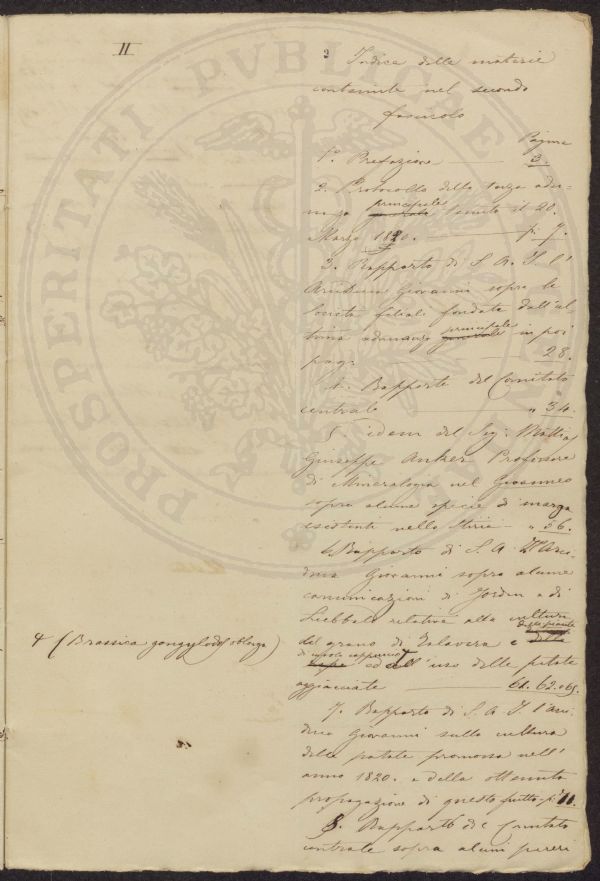 II
2 Indice delle materie
contenute nel secondo
fascicolo
Pagine
1° Prefazione 3.
2. Protocollo della terza adu-
nanza principale tenuta il 20.
Marzo 1820. p. 7.
3. Rapporto di S. A. I. l'
Arciduca Giovanni sopra le
Società filiali fondate dall'ul-
tima adunanza principale in poi
pag. 28.
4. Rapporto del Comitato
centrale " 34.
5. idem del Sig: Mattia
Giuseppe Anker Professore
di Mineralogia nel Giovanneo
sopra alcune specie di marga
esistenti nella Stiria " 56.
6. Rapporto di S. A. l'Arci-
duca Giovanni sopra alcune
comunicazioni di Jordan e di
Liebbald relative alla cultura
del grano di Talavera e delle piante
di cavolo cappuccio ed all'uso delle patate
aggiacciate 61. 62. e 65.
+ (Brassica gongylodes oblonga)
7. Rapporto di S. A. I. l'arci-
duca Giovanni sulla cultura
delle patate promossa nell'
anno 1820. e della ottenuta
propagazione di questo frutto p.
8. Rapporto del Comitato
centrale sopra alcuni pareri
PROSPERITATI PVBLICAE